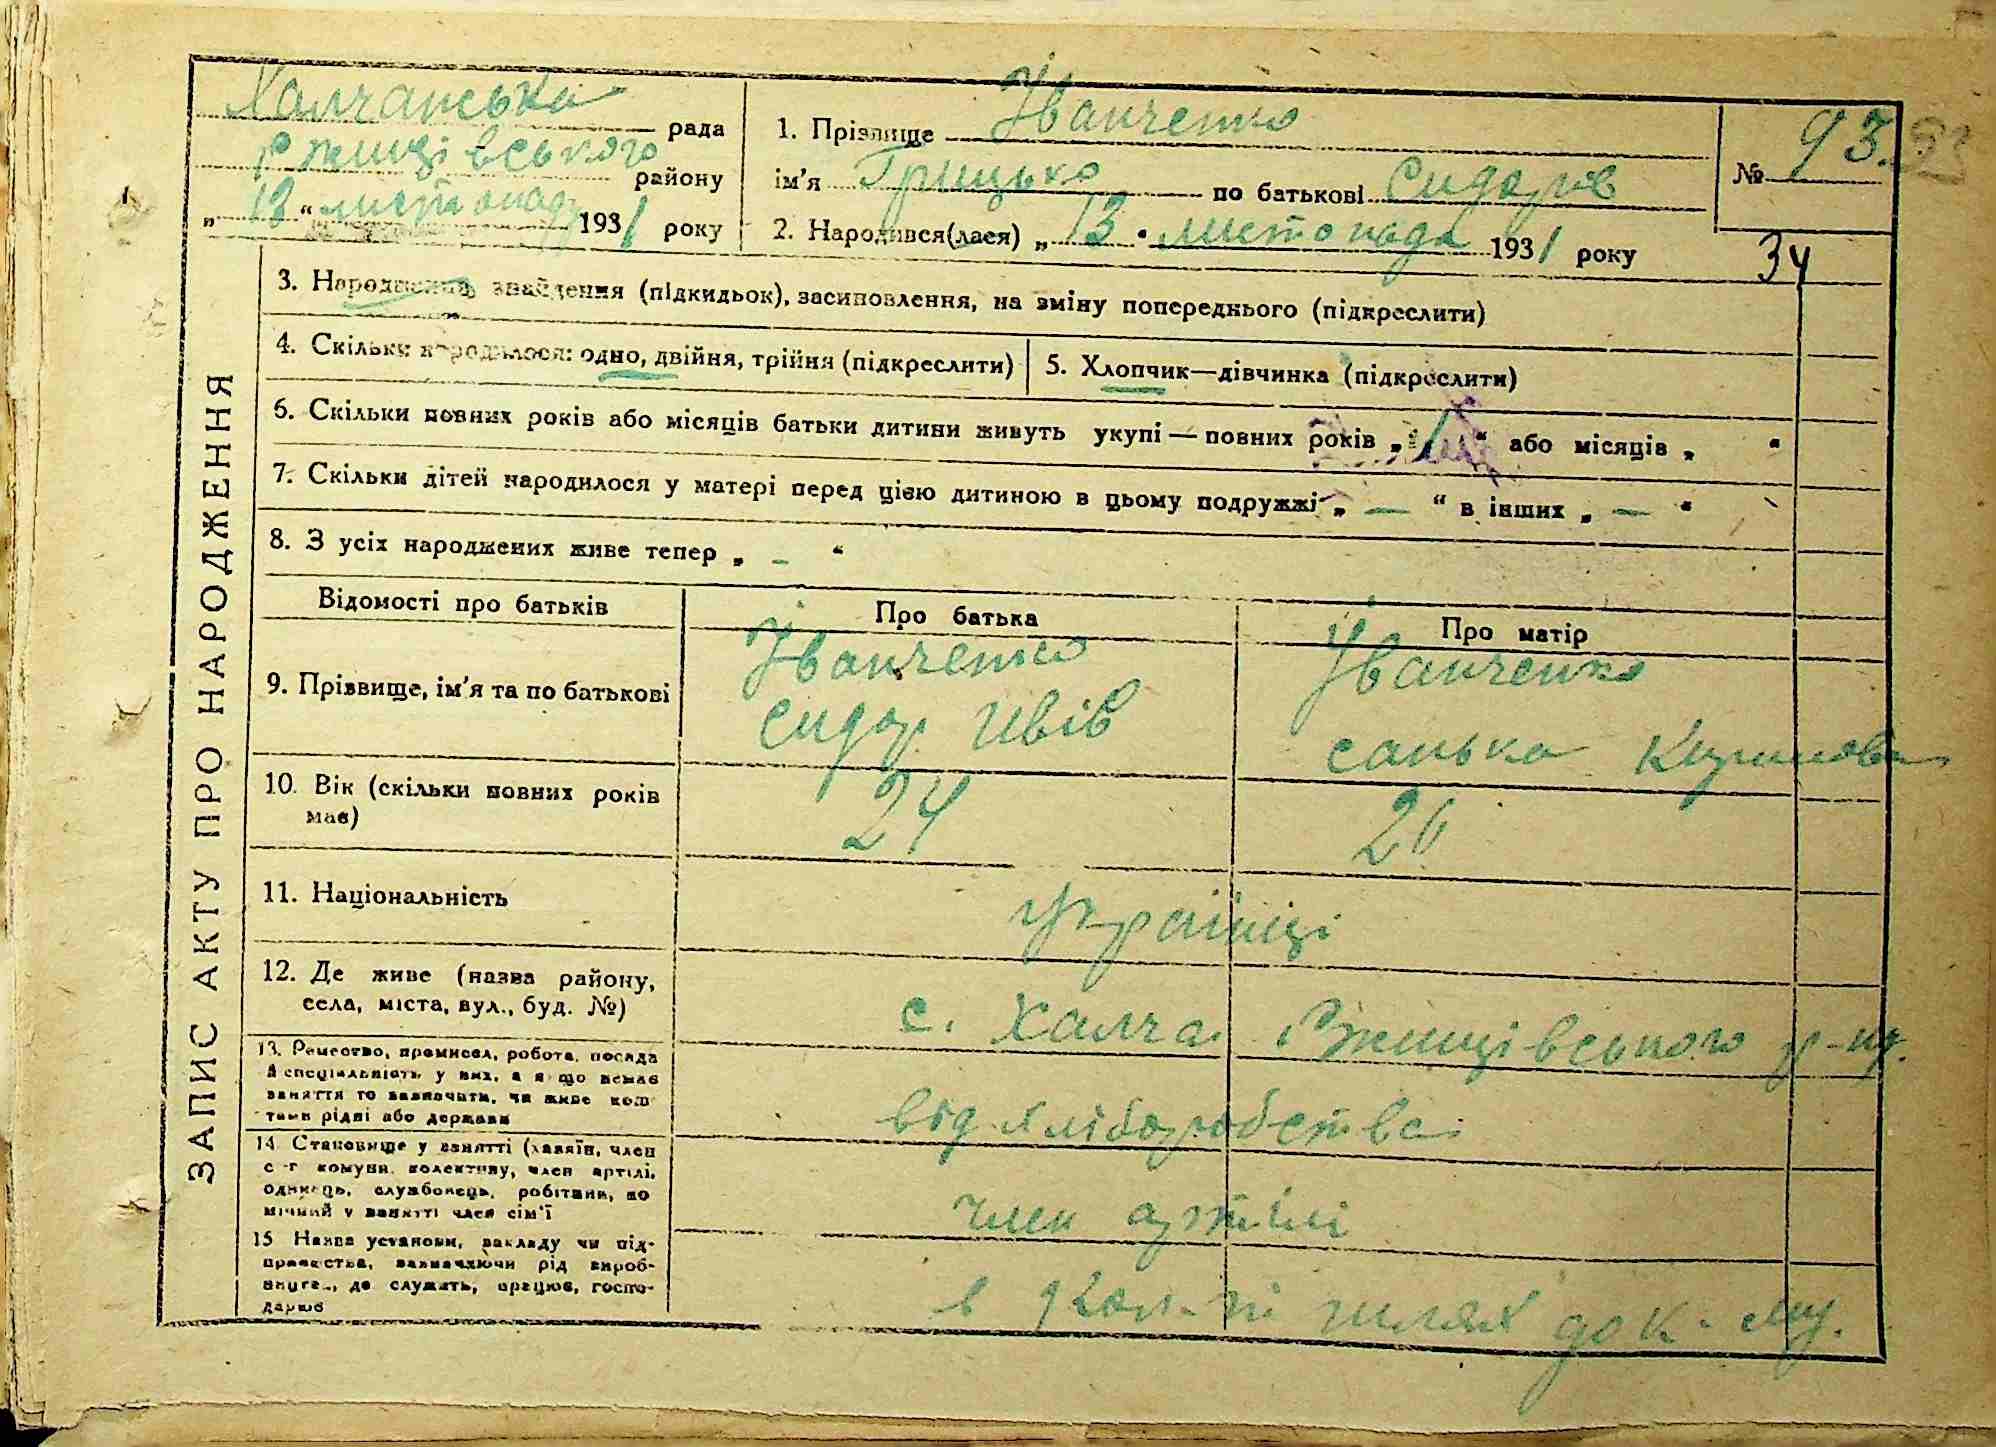 Халчанська рада
Ржищівського району
„13“ листопаду 1931 року
1. Прізвище Іванченко
ім'я Грицько по батькові Сидорів
2. Народився(лася) „13“ листопада 1931 року
№ 93.
34
ЗАПИС АКТУ ПРО НАРОДЖЕННЯ
3. Народження, знайдення (підкидьок), засиновлення, на зміну попереднього (підкреслити)
4. Скільки народилося: одно, двійня, трійня (підкреслити)
5. Хлопчик—дівчинка (підкреслити)
6. Скільки повних років або місяців батьки дитини живуть укупі — повних років „1“ або місяців „ “
7. Скільки дітей народилося у матері перед цією дитиною в цьому подружжі „—“ в інших „—“
8. З усіх народжених живе тепер „-“
Відомості про батьків
Про батька
Про матір
9. Прізвище, ім'я та по батькові
Іванченко
Сидор Ивів
Іванченко
Санька
10. Вік (скільки повних років
має)
24
26
11. Національність
Українці
12. Де живе (назва району,
села, міста, вул., буд. №)
с. Халча Ржищівського р-ну.
13. Ремество, промисел, робота, посада
й спеціальність у них, а якщо немає
заняття то зазначити, чи живе кош
тами рідні або держави
від хліборобства
14. Становище у занятті (хазяїн, член
с-г комуни, колективу, член артілі,
одинець, службовець, робітник, по
мічний у занятті член сім'ї
член артілі
15 Назва установи, закладу чи під-
приємства, зазначаючи рід вироб-
ництва, де служить, працює, госпо-
дарює
в шлях до к-му.